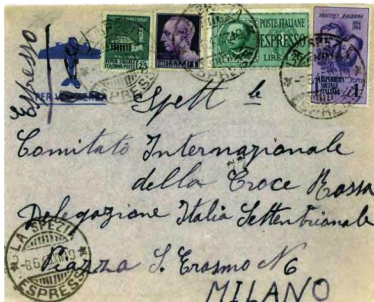 Espresso
POSTE ITALIANE
ESPRESSO
LIRE
25
PER VIA AEREA
Spett le
Comitato Internazionale
della Croce Rossa
Delegazione Italia Settentrionale
Piazza S. Erasmo N 6
MILANO
LA SPEZIA
ESPRESSI